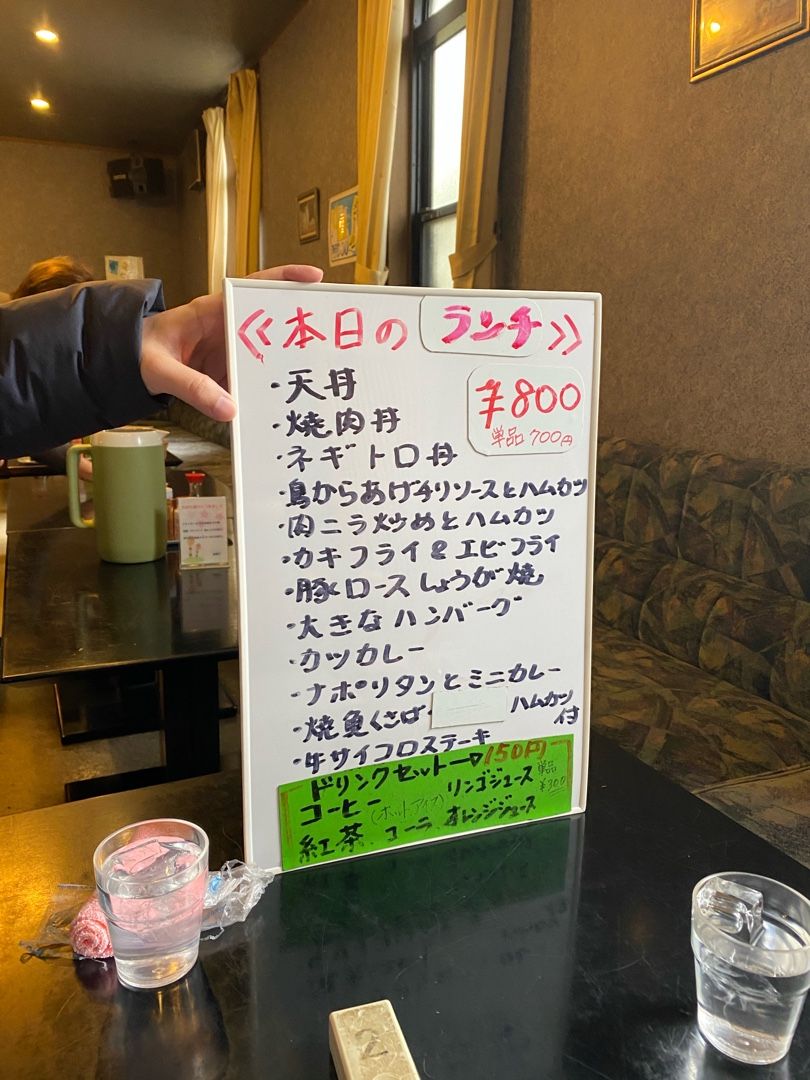 ≪本日の ランチ≫
¥800
単品700円
・天丼
・焼肉丼
・ネギトロ丼
・鳥からあげチリソースとハムカツ
・肉ニラ炒めとハムカツ
・カキフライ&エビフライ
・豚ロースしょうが焼
・大きなハンバーグ
・カツカレー
・ナポリタンとミニカレー
・焼魚くさば ハムカツ付
・牛サイコロステーキ
ドリンクセット→150円
コーヒー(ホット、アイス) リンゴジュース 単品¥300
紅茶、コーラ、オレンジジュース
2